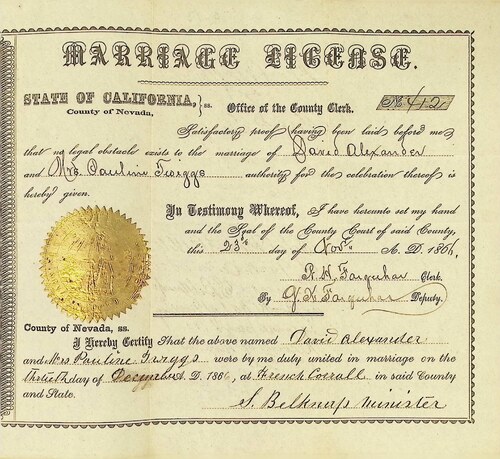 MARRIAGE LICENSE.
STATE OF CALIFORNIA, } ss. Office of the County Clerk. No. 42
County of Nevada,
Satisfactory proof having been laid before me
that no legal obstacle exists to the marriage of David Alexander
and Mrs. Pauline Twiggs authority for the celebration thereof is
hereby given.
In Testimony Whereof, I have hereunto set my hand
and the Seal of the County Court of said County,
this 23d day of Novr. A. D. 1866,
Farquhar Clerk.
By Farquhar Deputy.
County of Nevada, ss.
I Hereby Certify That the above named David Alexander
and Mrs Pauline Twiggs were by me duly united in marriage on the
day of December A. D. 1866, at French Corrall in said County
and State.
S. Belknap Minister